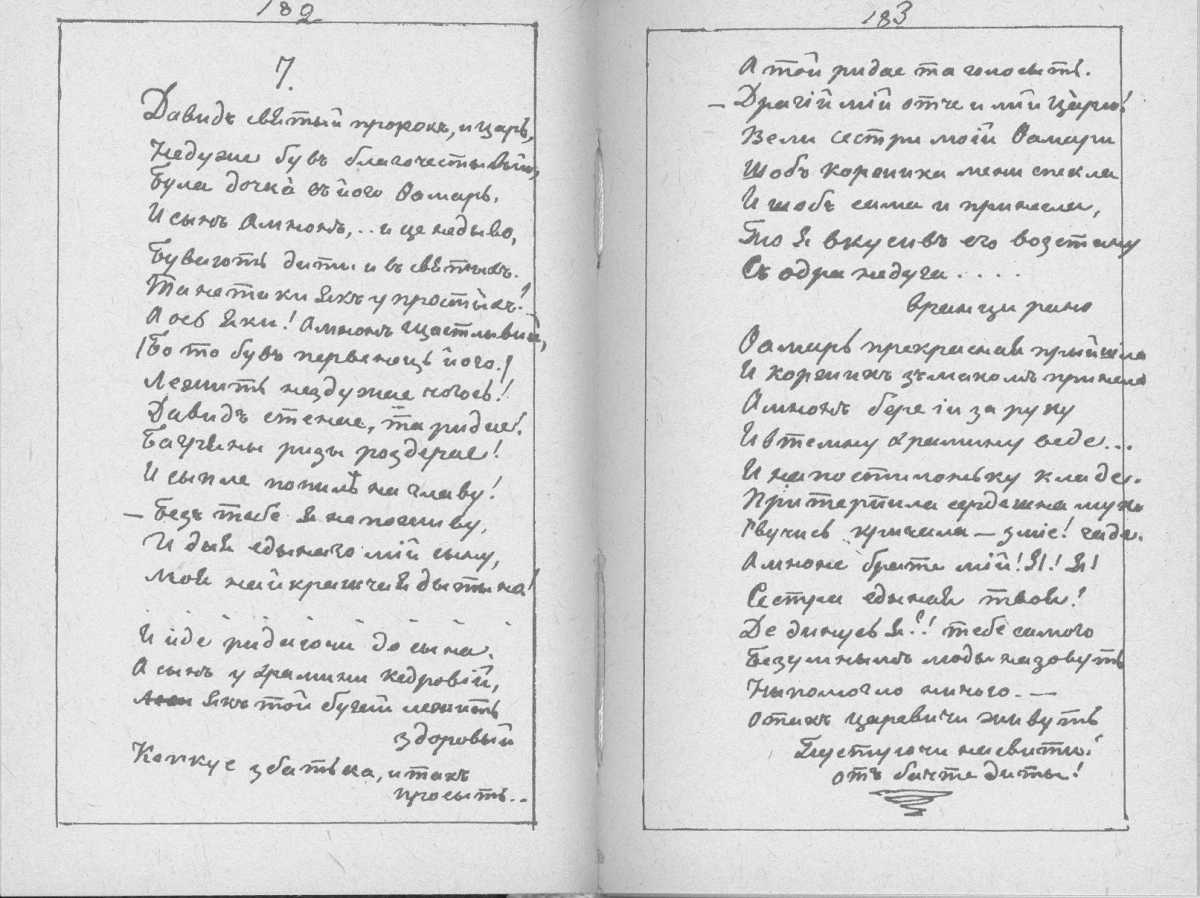 182
7.
Давидъ святый пророкъ, и царь,
Недуже бувъ благочестывый,
Була дочка въ його Ѳамарь.
И сынъ Амнонъ,.. и це не дыво,
Бувають дити и въ святыхъ.
Та не таки якъ у простыхъ!
А ось яки! Амнонъ щастлывый,
(Бо то бувъ первенець його.)
Лежить нездужае чогось!
Давидъ стенае, та ридае.
Багряны ризы роздерае!
И сыпле попилъ на главу!
— Безъ тебе я не пожыву,
И дня едынаго мій сыну,
Моя найкращчая дытына!
И йде ридаючи до сына.
А сынъ у храмини кедровій,
Якъ той бугай лежить
здоровый
Кепкуе зъ батька, и такъ
просыть..
183
А той ридае та голосыть.
— Драгій мій отче и мій царю!
Вели сестри моій Ѳамари
Щобъ коржика мени спекла
И щобъ сама и принесла,
То я вкусивъ его возстану
Съ одра недуга . . . .
вранци рано
Ѳамарь прекрасная прыйшла
И коржикъ зъ макомъ принесла
Амнонъ бере іи за руку
И въ темну храмину веде...
И на постилоньку кладе.
Притерпила сердешна муку
Рвучись кричала — зміе! гаде.
Амноне брате мій! Я! Я!
Сестра едыная твоя!
Де динусь я!! тебе самого
Безумнымъ люды назовуть
Ны помогло ничого. —
Отакъ царевичи живуть
Пустуючи на свити.
Отъ бачте диты!